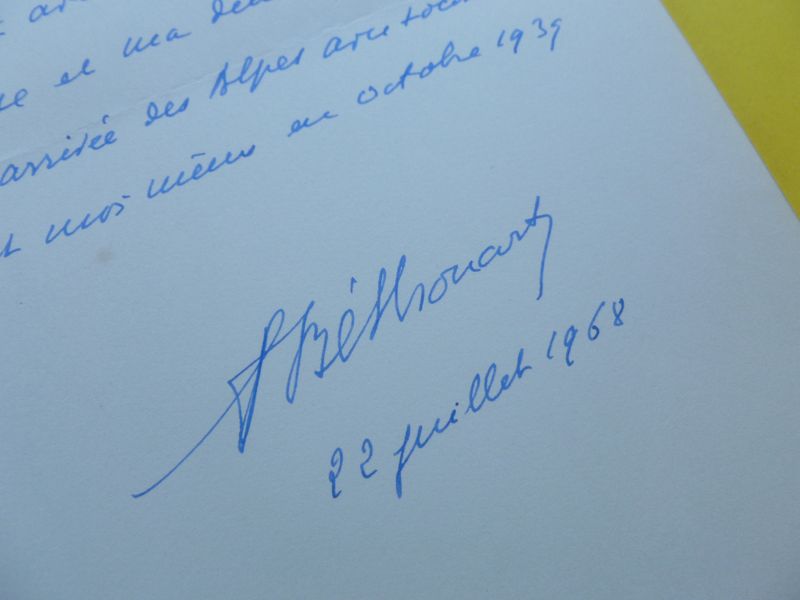 et ma
arrivée des Alpes avec
et moi même en octobre 1939
Béthouart
22 juillet 1968